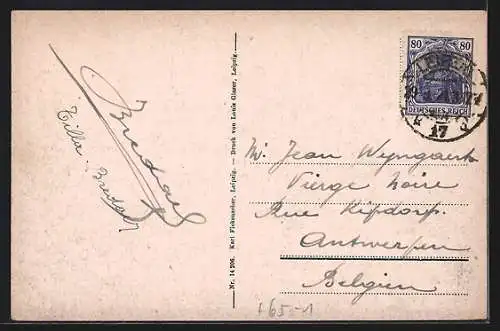 Bredael
Tilla Bredael
Nr. 14 206. Karl Fickenscher, Leipzig. — Druck von Louis Glaser, Leipzig.
80 80
DEUTSCHES REICH
17
Mr. Jean Wyngaert
Vierge Noire
Rue
Antwerpen
Belgien